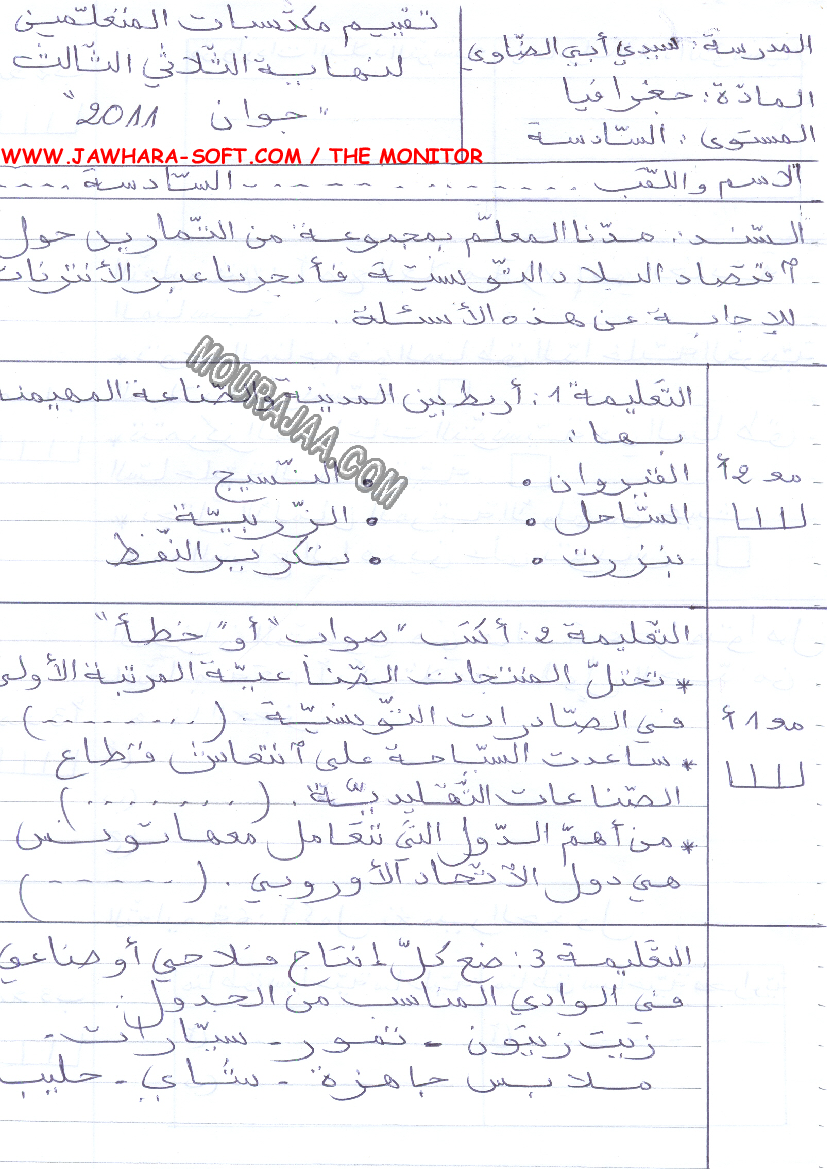 المدرسة: سيدي أبي الضاوي
المادّة: جغرافيا
المستوى: السّادسة
تقييم مكتسبات المتعلّمين
لنهاية الثّلاثي الثّالث
"جوان 2011"
WWW.JAWHARA-SOFT.COM / THE MONITOR
الاسم واللّقب .................... السّادسة ....
السّند: مدّنا المعلّم بمجموعة من التّمارين حول
اقتصاد البلاد التّونسيّة فأبحرنا عبر الأنترنات
للإجابة عن هذه الأسئلة.
MOURAJAA.COM
التّعليمة 1: أربط بين المدينة والصّناعة المهيمنة
بها:
القيروان • • النّسيج
السّاحل • • الزّربيّة
بنزرت • • تكرير النّفط
مع 2أ
التّعليمة 2: أكتب "صواب" أو "خطأ"
* تحتلّ المنتجات الصّناعيّة المرتبة الأولى
في الصّادرات التّونسيّة. (........)
* ساعدت السّياحة على انتعاش قطاع
الصّناعات التّقليديّة. (........)
* من أهمّ الدّول الّتي تتعامل معها تونس
هي دول الاتّحاد الأوروبي. (......)
مع 1أ
التّعليمة 3: ضع كلّ إنتاج فلاحي أو صناعي
في الوادي المناسب من الجدول:
زيت زيتون - تمور - سيّارات -
ملابس جاهزة - شاي - حليب